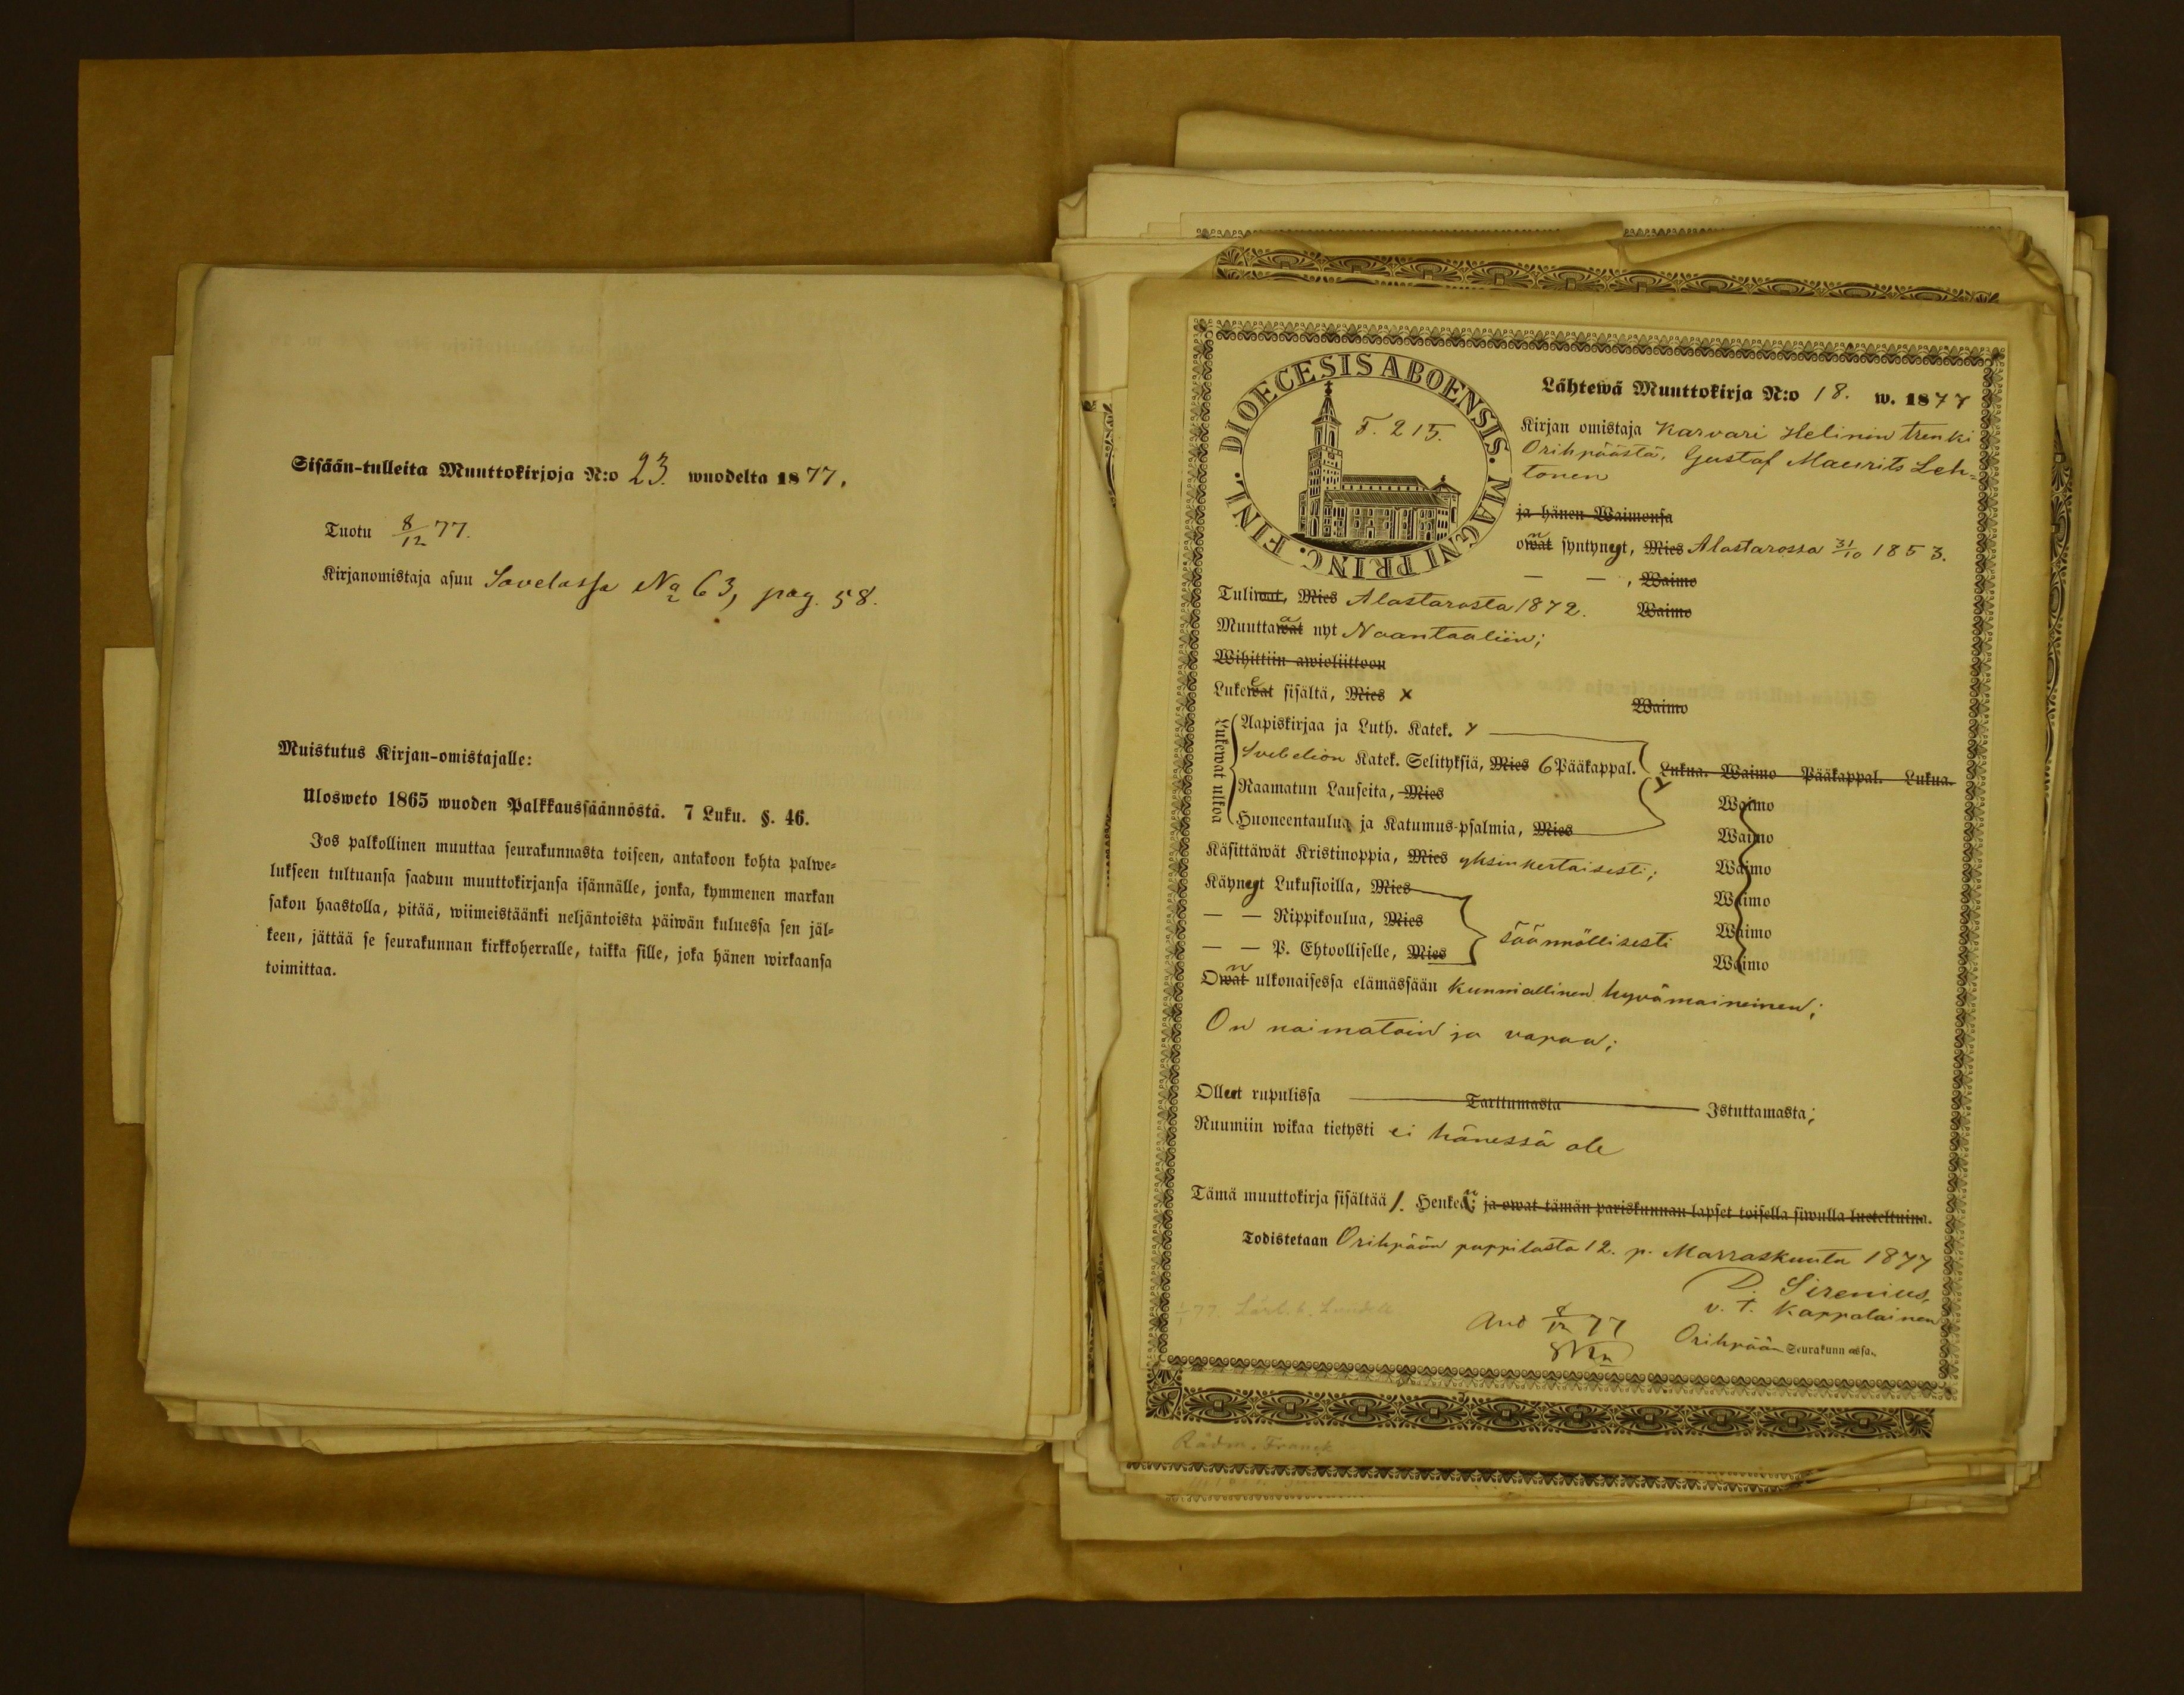 Sisään-tulleita Muuttokirjoja N:o 23. wuodelta 1877.
Tuotu 8/12 77.
Kirjanomistaja asuu Savelassa No 63, pag. 58.
Muistutus Kirjan-omistajalle:
Ulosweto 1865 wuoden Palkkaussäännöstä. 7 Luku. §. 46.
Jos palkollinen muuttaa seurakunnasta toiseen, antakoon kohta palwe-
lukseen tultuansa saadun muuttokirjansa isännälle, jonka, kymmenen markan
sakon haastolla, pitää, wiimeistäänki neljäntoista päiwän kuluessa sen jäl-
keen, jättää se seurakunnan kirkkoherralle, taikka sille, joka hänen wirkaansa
toimittaa.
DIOECESIS ABOENSIS. MAGNI PRINC. FINL.
F. 215.
Lähtewä Muuttokirja N:o 18. w. 1877
Kirjan omistaja Karvari Helinin trenki
Orihpäästä, Gustaf Maurits Leh-
tonen
ja hänen Waimonsa
owat n syntynyt, Mies Alastarossa 31/10 1853.
— — , Waimo
Tuliwat, Mies Alastarosta 1872. Waimo
Muuttawat a nyt Naantaaliin;
Wihittiin awioliittoon
Lukewat e sisältä, Mies x Waimo
Lukewat ulkoa
Aapiskirjaa ja Luth. Katek. x
Svebelion Katek. Selityksiä, Mies 6 Pääkappal. Lukua. Waimo Pääkappal. Lukua.
Raamatun Lauseita, Mies x Waimo
Huoneentaulua ja Katumus-psalmia, Mies Waimo
Käsittäwät Kristinoppia, Mies yksinkertaisesti; Waimo
Käynyt Lukusioilla, Mies Waimo
— — Rippikoulua, Mies säännöllisesti Waimo
— — P. Ehtoolliselle, Mies Waimo
Owat n ulkonaisessa elämässään kunniallinen hyvämaineinen;
On naimatoin ja vapaa;
Ollut rupulissa Tarttumasta Istuttamasta;
Ruumiin wikaa tietysti ei hänessä ole
Tämä muuttokirja sisältää 1. Henken; ja owat tämän pariskunnan lapset toisella siwulla lueteltuina.
Todistetaan Orihpään pappilasta 12. p. Marraskuuta 1877
D. Sirenius,
v. t. Kappalainen
Orihpään Seurakunnassa.
77. Lundell
8/12 77
Rådm. Franck